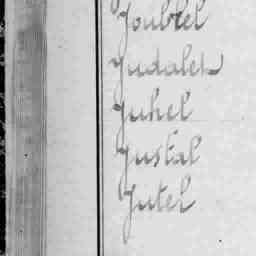 Joubrel
Judalet
Juhel
Justal
Jutel